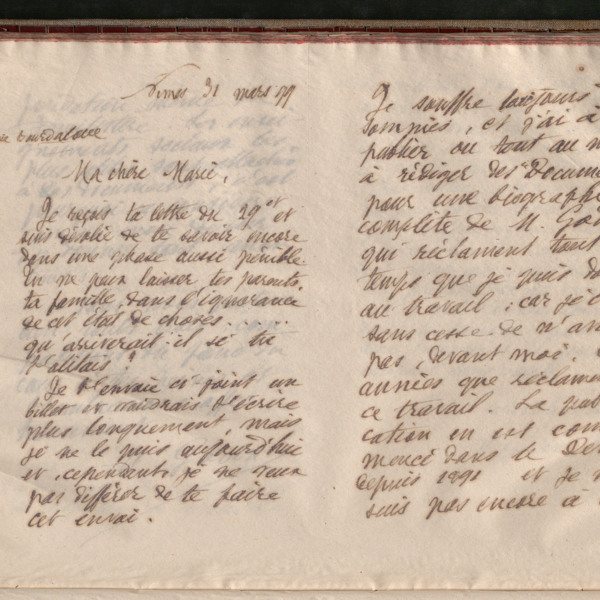 Nimes 31 mars 99
rue Bourdaloue
Ma chère Marie,
Je reçois ta lettre du 29 et
suis désolée de te savoir encore
dans une phase aussi pénible
tu ne peux laisser tes parents,
ta famille, dans l'ignorance
de cet état de choses . . . . .
qu'arriverait-il si tu
t'alitais ?
Je t'envoie ci-joint un
billet et voudrais t'écrire
plus longuement, mais
je ne le puis aujourd'hui
et, cependant, je ne veux
pas différer de te faire
cet envoi.
Je souffre toujours
, et j'ai à
publier ou tout au m
à rédiger des Docume
pour une biographi
complète de M. God
qui réclament tout
temps que je puis do
au travail : car je c
sans cesse de n'av
pas, devant moi,
années que réclame
ce travail. La pub
cation en est com
mencé dans le Dev
depuis 1891 et je n
suis pas encore à